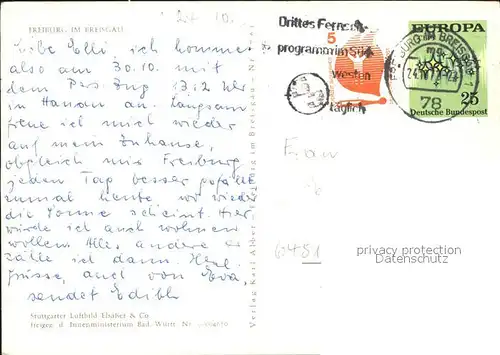 FREIBURG IM BREISGAU
Liebe Elli, ich komme
also am 30.10. mit
dem Pers. Zug 13,12 Uhr
in Hanau an. Langsam
freue ich mich wieder
auf mein Zuhause,
obgleich mir Freiburg
jeden Tag besser gefällt
zumal heute, wo wieder
die Sonne scheint. Hier
würde ich auch wohnen
wollen. Alles andere er-
zähle ich dann. Herzl.
Grüsse, auch von Eva,
sendet Edith
Stuttgarter Luftbild Elsäßer & Co
Freigeg. d. Innenministerium Bad.-Württ. Nr.
Verlag Karl Alber Freiburg im Breisgau
Drittes Fernseh-
programm im Süd-
westen
täglich
5
EUROPA
FREIBURG IM BREISGAU
78
25
Deutsche Bundespost
Frau
6451
privacy protection
Datenschutz